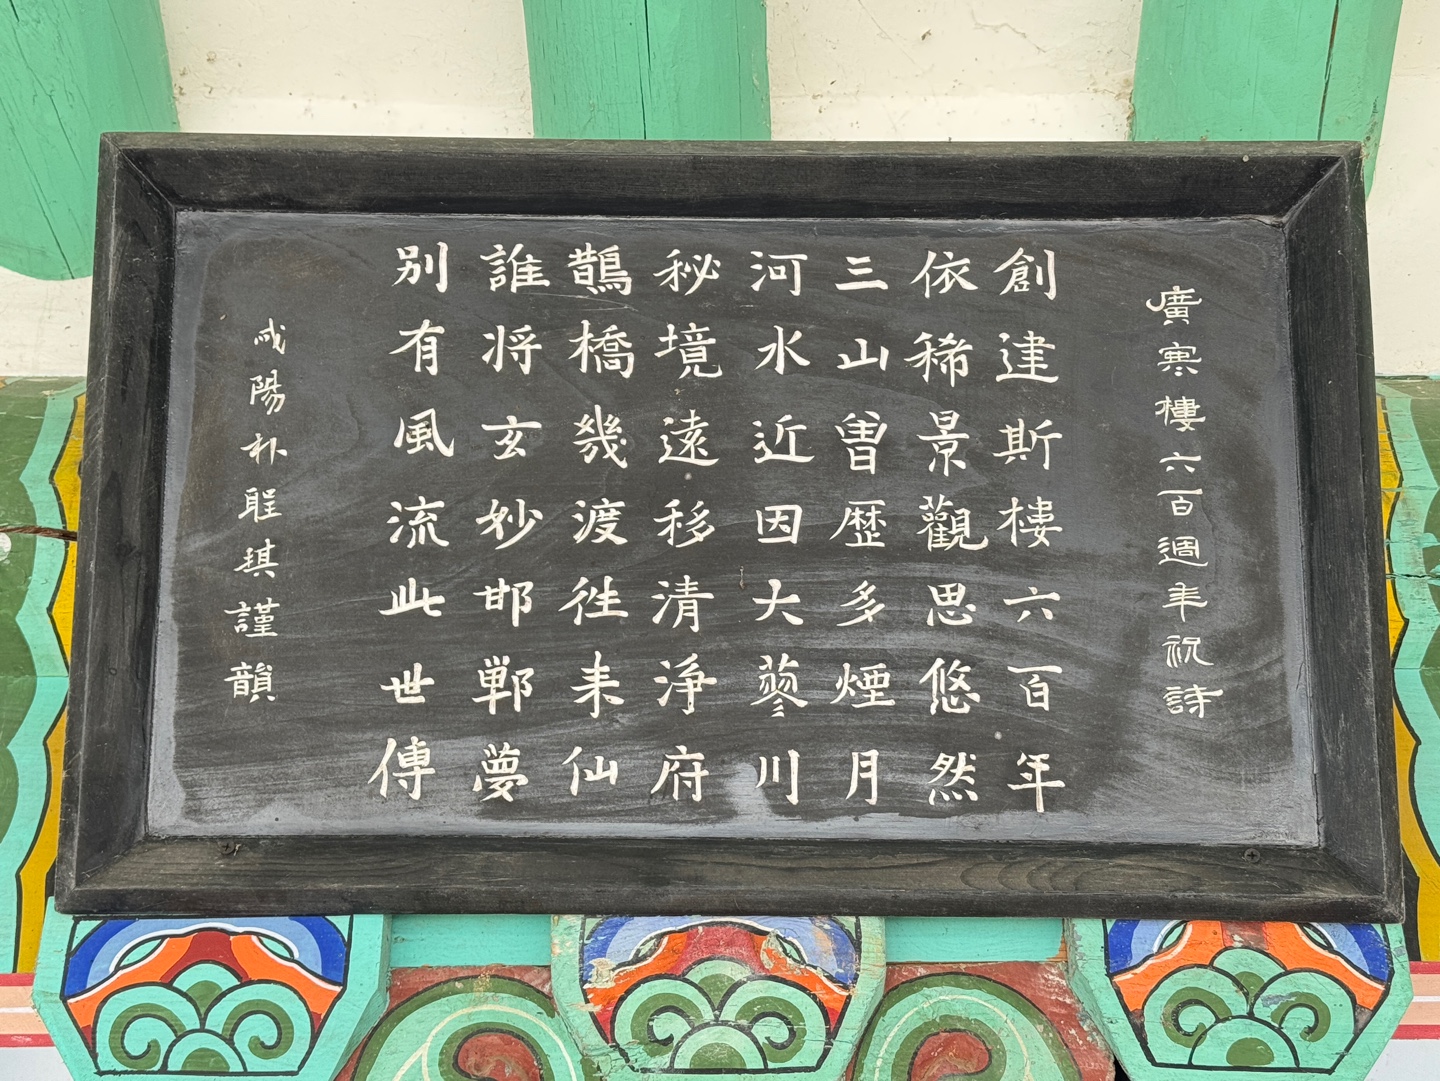 廣寒樓六百週年祝詩
創建斯樓六百年
依稀景觀思悠然
三山曾歷多煙月
河水近因大蓼川
秘境遠移清淨府
鵲橋幾渡往来仙
誰将玄妙邯鄲夢
別有風流此世傳
咸陽朴 琪謹韻